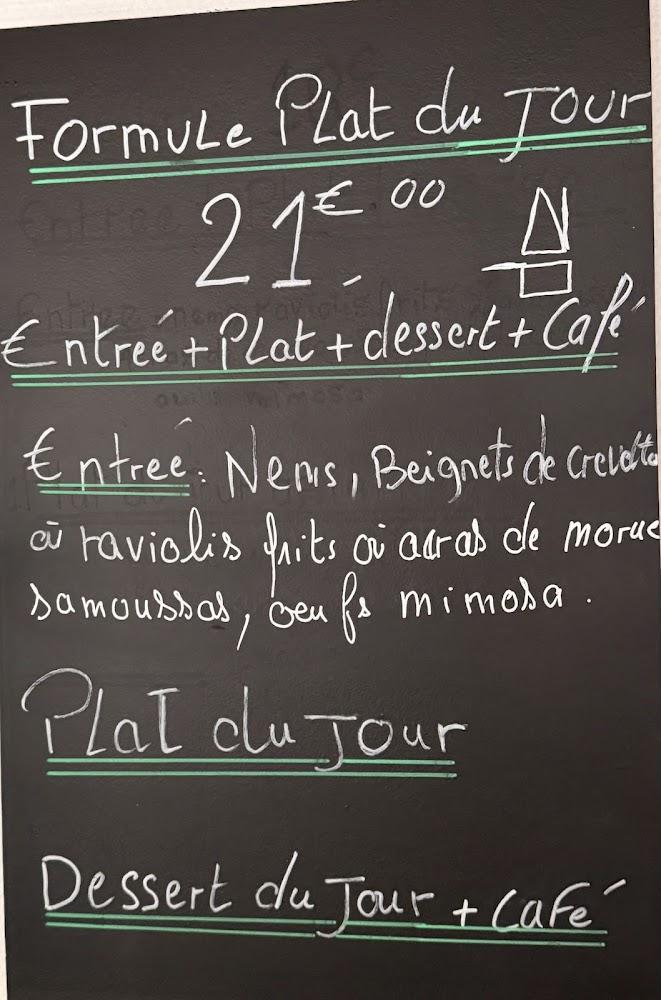 Formule Plat du Jour
21€00
Entreé + Plat + dessert + Café
Entreé : Nems, Beignets de Crevette
où raviolis frits où acras de morue
samoussas, oeufs mimosa.
Plat du Jour
Dessert du Jour + Café